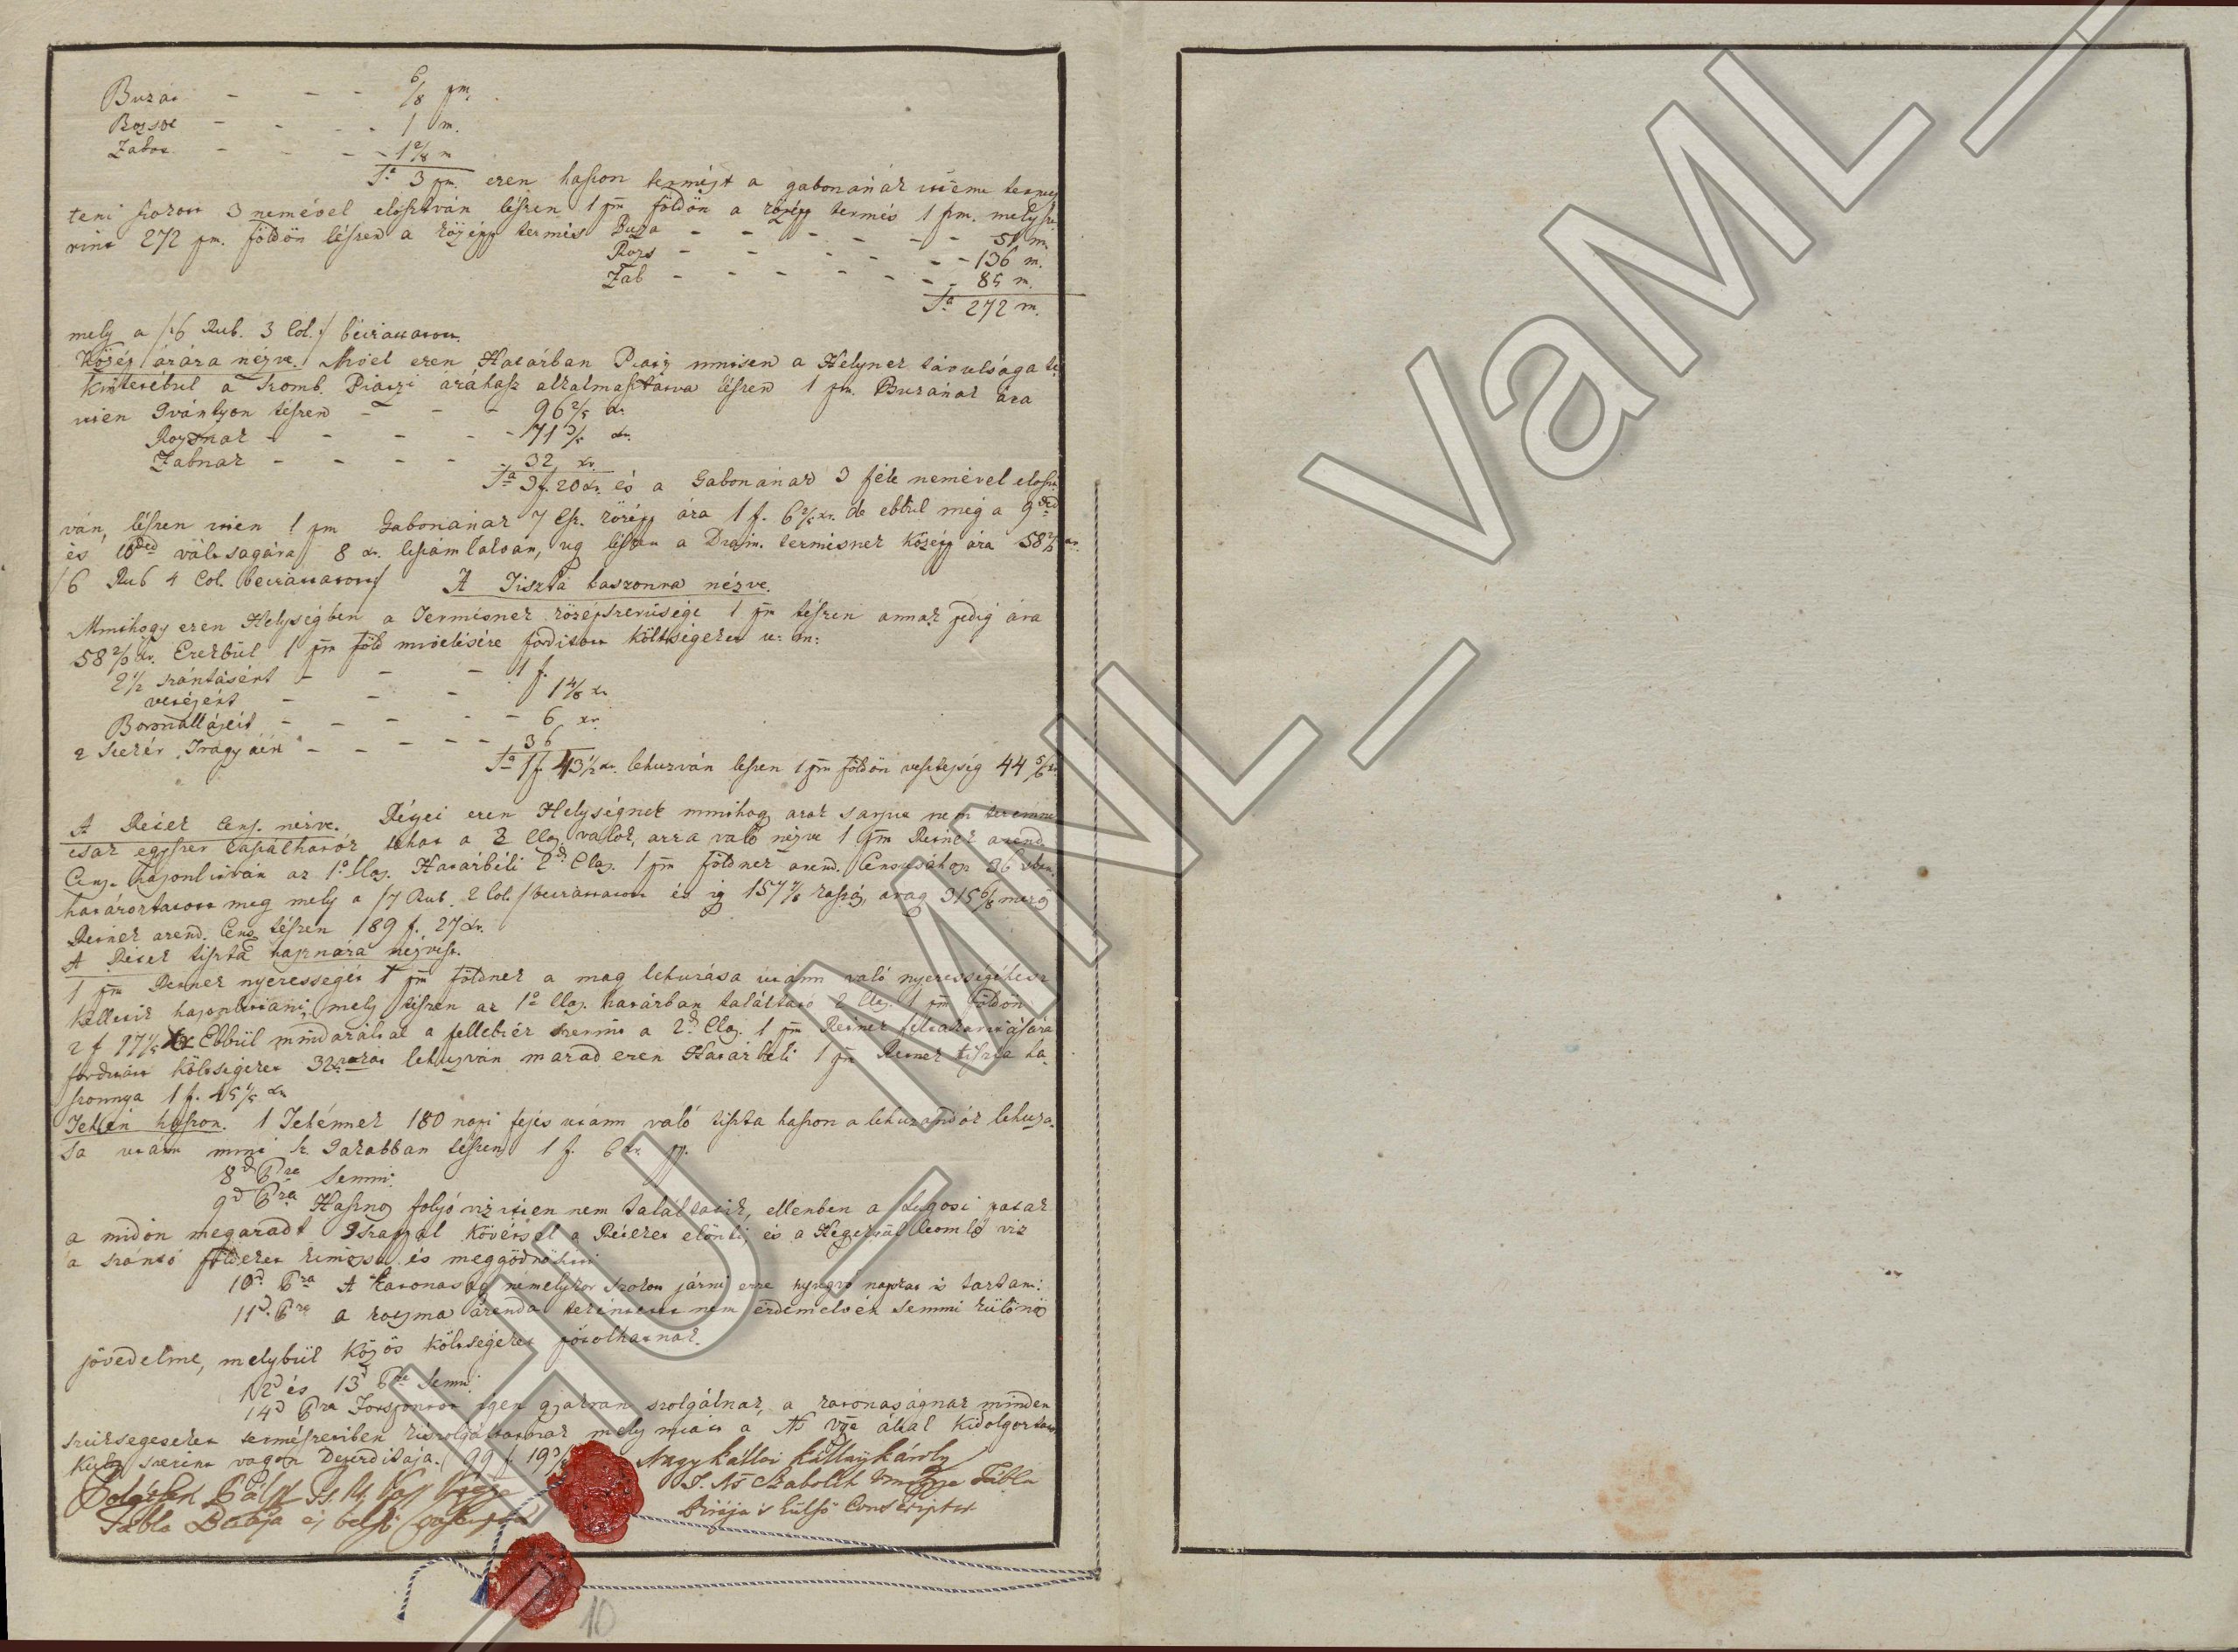 Buza - - - 6/8 pm.
Rozsbe - - - 1 m.
Zabbe - - - 1 2/8 m
Sa 3 pm. ezen haszon termést a gabonának
teni szokott 3 nemével elosztván lészen 1 pm földön a közép termés 1 pm. mely sze
rint 272 pm. földön lészen a közép termés Buza - - - - - 51 m.
Rozs - - - - - 136 m.
Zab - - - - - 85 m.
Sa 272 m.
mely a /:6 Rub. 3 Col.:/ béirattatott.
Közép árára nézve. Mivel ezen Határban Piacz nintsen a Helynek távulsága te
kintetébül a Szomb. Piaczi árához alkalmaztatva lészen 1 pm. Buzának ára
itten Iványon lészen - - - 96 2/5 xr.
Rozsnak - - - - 71 3/5 xr.
Zabnak - - - - 32 xr.
Sa 3 f. 20 xr. és a Gabonának 3 féle nemével eloszt
ván, lészen itten 1 pm Gabonának 7 Esz. közép ára 1 f. 6 2/3 xr. de ebbül még a 9ded
és 10ded váltságára 8 xr. leszámláltatván, ug lészen a Dezm. termésnek Közép ára 58 2/3 xr.
/6 Rub 4 Col. béirattatott/ A Tiszta haszonra nézve.
Minthogy ezen Helységben a Termésnek középszerűsége 1 pm lészen annak pedig ára
58 2/3 xr. Ezekbül 1 pm föld mivelésére fordított költségeket u: m:
2 1/2 szántásért - - - 1 f.
vetéjért - - - 1 4/8 xr
Boronálltájért - - - - 6 xr.
2 Szekér Trágyáért - - - - 36
Sa 1 f. 43 1/2 xr. lehuzván leszen 1 pm földön veszteség 44 5/6 xr
A Rétek Cens. nézve. Rétjei ezen Helységnek minthogy azok sarjut nem teremnek
csak egyszer kaszálhatók, tehát a 2 Clas. valók, arra való nézve 1 pm Rétnek arend.
Cens. hasonlitván az 1o Clas. Határbéli 2d Clas. 1 pm földnek arend. Censusához 36 xban
határoztatott meg mely a /7 Rub. 2 Col./ béirattatott és ig 157 7/8 kaszás, avag 315 6/8 mérő
Rétnek arend. Cens. lészen 189 f. 27 xr.
A Rétek tiszta hasznára nézvest.
1 pm Rétnek nyereségét 1 pm földnek a mag lehuzása utánn való nyereségéhez
kelletik hasonlitani, mely lészen az 1o Clas. határban találtató 2 Clas. 1 pm földön
2 f 17 1/5 xr Ebbül mindazáltal a fellebbiek szerint a 2d Clas. 1 pm Rétnek feltakaritására
fordittatott költségeket 32 xrokat lehuzván marad ezen Határbéli 1 pm Rétnek tiszta ha
szonnya 1 f. 45 1/5 xr
Tehén haszon. 1 Tehénnek 180 napi fejés utánn való tiszta haszon a lehuzandók lehuzá
sa után mint k. Darabban lészen 1 f. 6 xr pp.
8d Pra Semmi.
9d Pra Hasznos folyó viz itten nem találtatik, ellenben a Lugosi patak
a midőn megáradt Iszappal kövérséll a Réteket elönti, és a Hegekrül leomló viz
a szántó földeket kimossa és meggödrösiti
10d. Pra A katonaság némelykor szokott járni erre nyugvó napokat is tartani:
11d. Pra a korsma árenda tekéntetet nem érdemelvén semmi különös
jövedelme, melybül közös költségeket pótolhatnak.
12d és 13d Pra Semmi.
14d Pra Forspontot igen gyakran szolgálnak, a katonaságnak minden
szükségeseket természetiben kiszolgáltatnak mely miatt a Ns Vgye által kidolgoztatott
Kults szerint vagon Deperditája. 99 f 19 3/
Nagy Kállói Kállay Károly
T. Ns Szabolch Vármegye Tábla
Birája s külső Conscriptor
Tábla Birája és belső Conscriptor
10
HU_MNL_VaML_